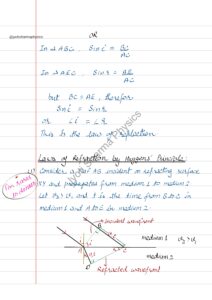 OR
@jyotisharmaphysics
In Δ ABC, Sin i = BC
AC
In Δ AEC, Sin r = AE
AC
but BC = AE, therefor
Sin i = Sin r
or ∠i = ∠r
This is the law of reflection
Laws of Refraction by Huygens' Principle
Consider AB incident on refracting surface
XY and propagates from medium 1 to medium 2
Let V₂ > V₁ and t is the time from B to C in
medium 1 and A to E in medium 2.
Incident wavefront
medium 1
V₂ > V₁
medium 2
Refracted wavefront
Jyoti Sharma Physics